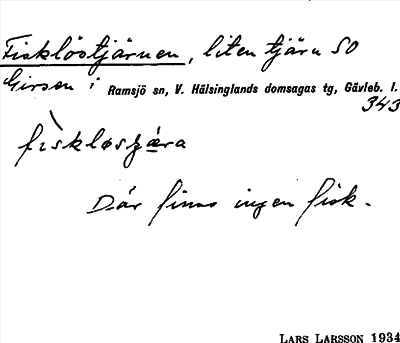 Fisklöstjärnen, liten tjärn SO
Girsen i Ramsjö sn, V. Hälsinglands domsagas tg, Gävleb. l.
343
Där finns ingen fisk.
LARS LARSSON 1934